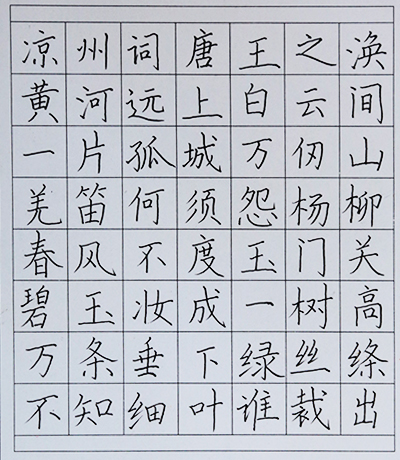 凉州词唐王之涣
黄河远上白云间
一片孤城万仞山
羌笛何须怨杨柳
春风不度玉门关
碧玉妆成一树高
万条垂下绿丝绦
不知细叶谁裁出